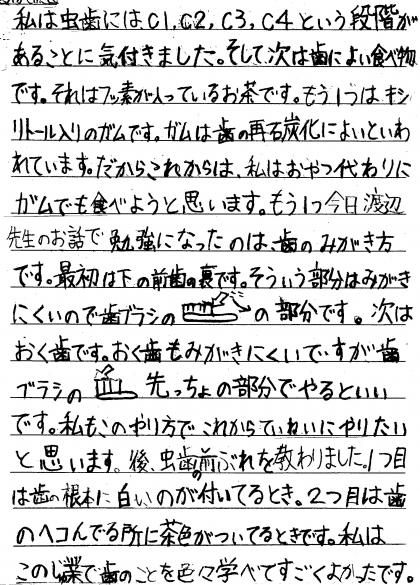 私は虫歯にはC1,C2,C3,C4という段階が
あることに気付きました。そして、次は歯によい食べ物
です。それはフッ素が入っているお茶です。もう1つはキシ
リトール入りのガムです。ガムは歯の再石炭化によいといわ
れています。だからこれからは、私はおやつ代わりに
ガムでも食べようと思います。もう1つ今日渡辺
先生のお話で勉強になったのは、歯のみがき方
です。最初は下の前歯の裏です。そういう部分はみがき
にくいので歯ブラシの の部分です。次は
おく歯です。おく歯もみがきにくいですが歯
ブラシの 先っちょの部分でやるといい
です。私もこのやり方でこれからていねいにやりたい
と思います。後、虫歯の前ぶれを教わりました。1つ目
は歯の根本に白いのが付いてるとき。2つ月は歯
のヘコんでる所に茶色がついてるときです。私は
この授業で歯のことを色々学べてすごくよかったです